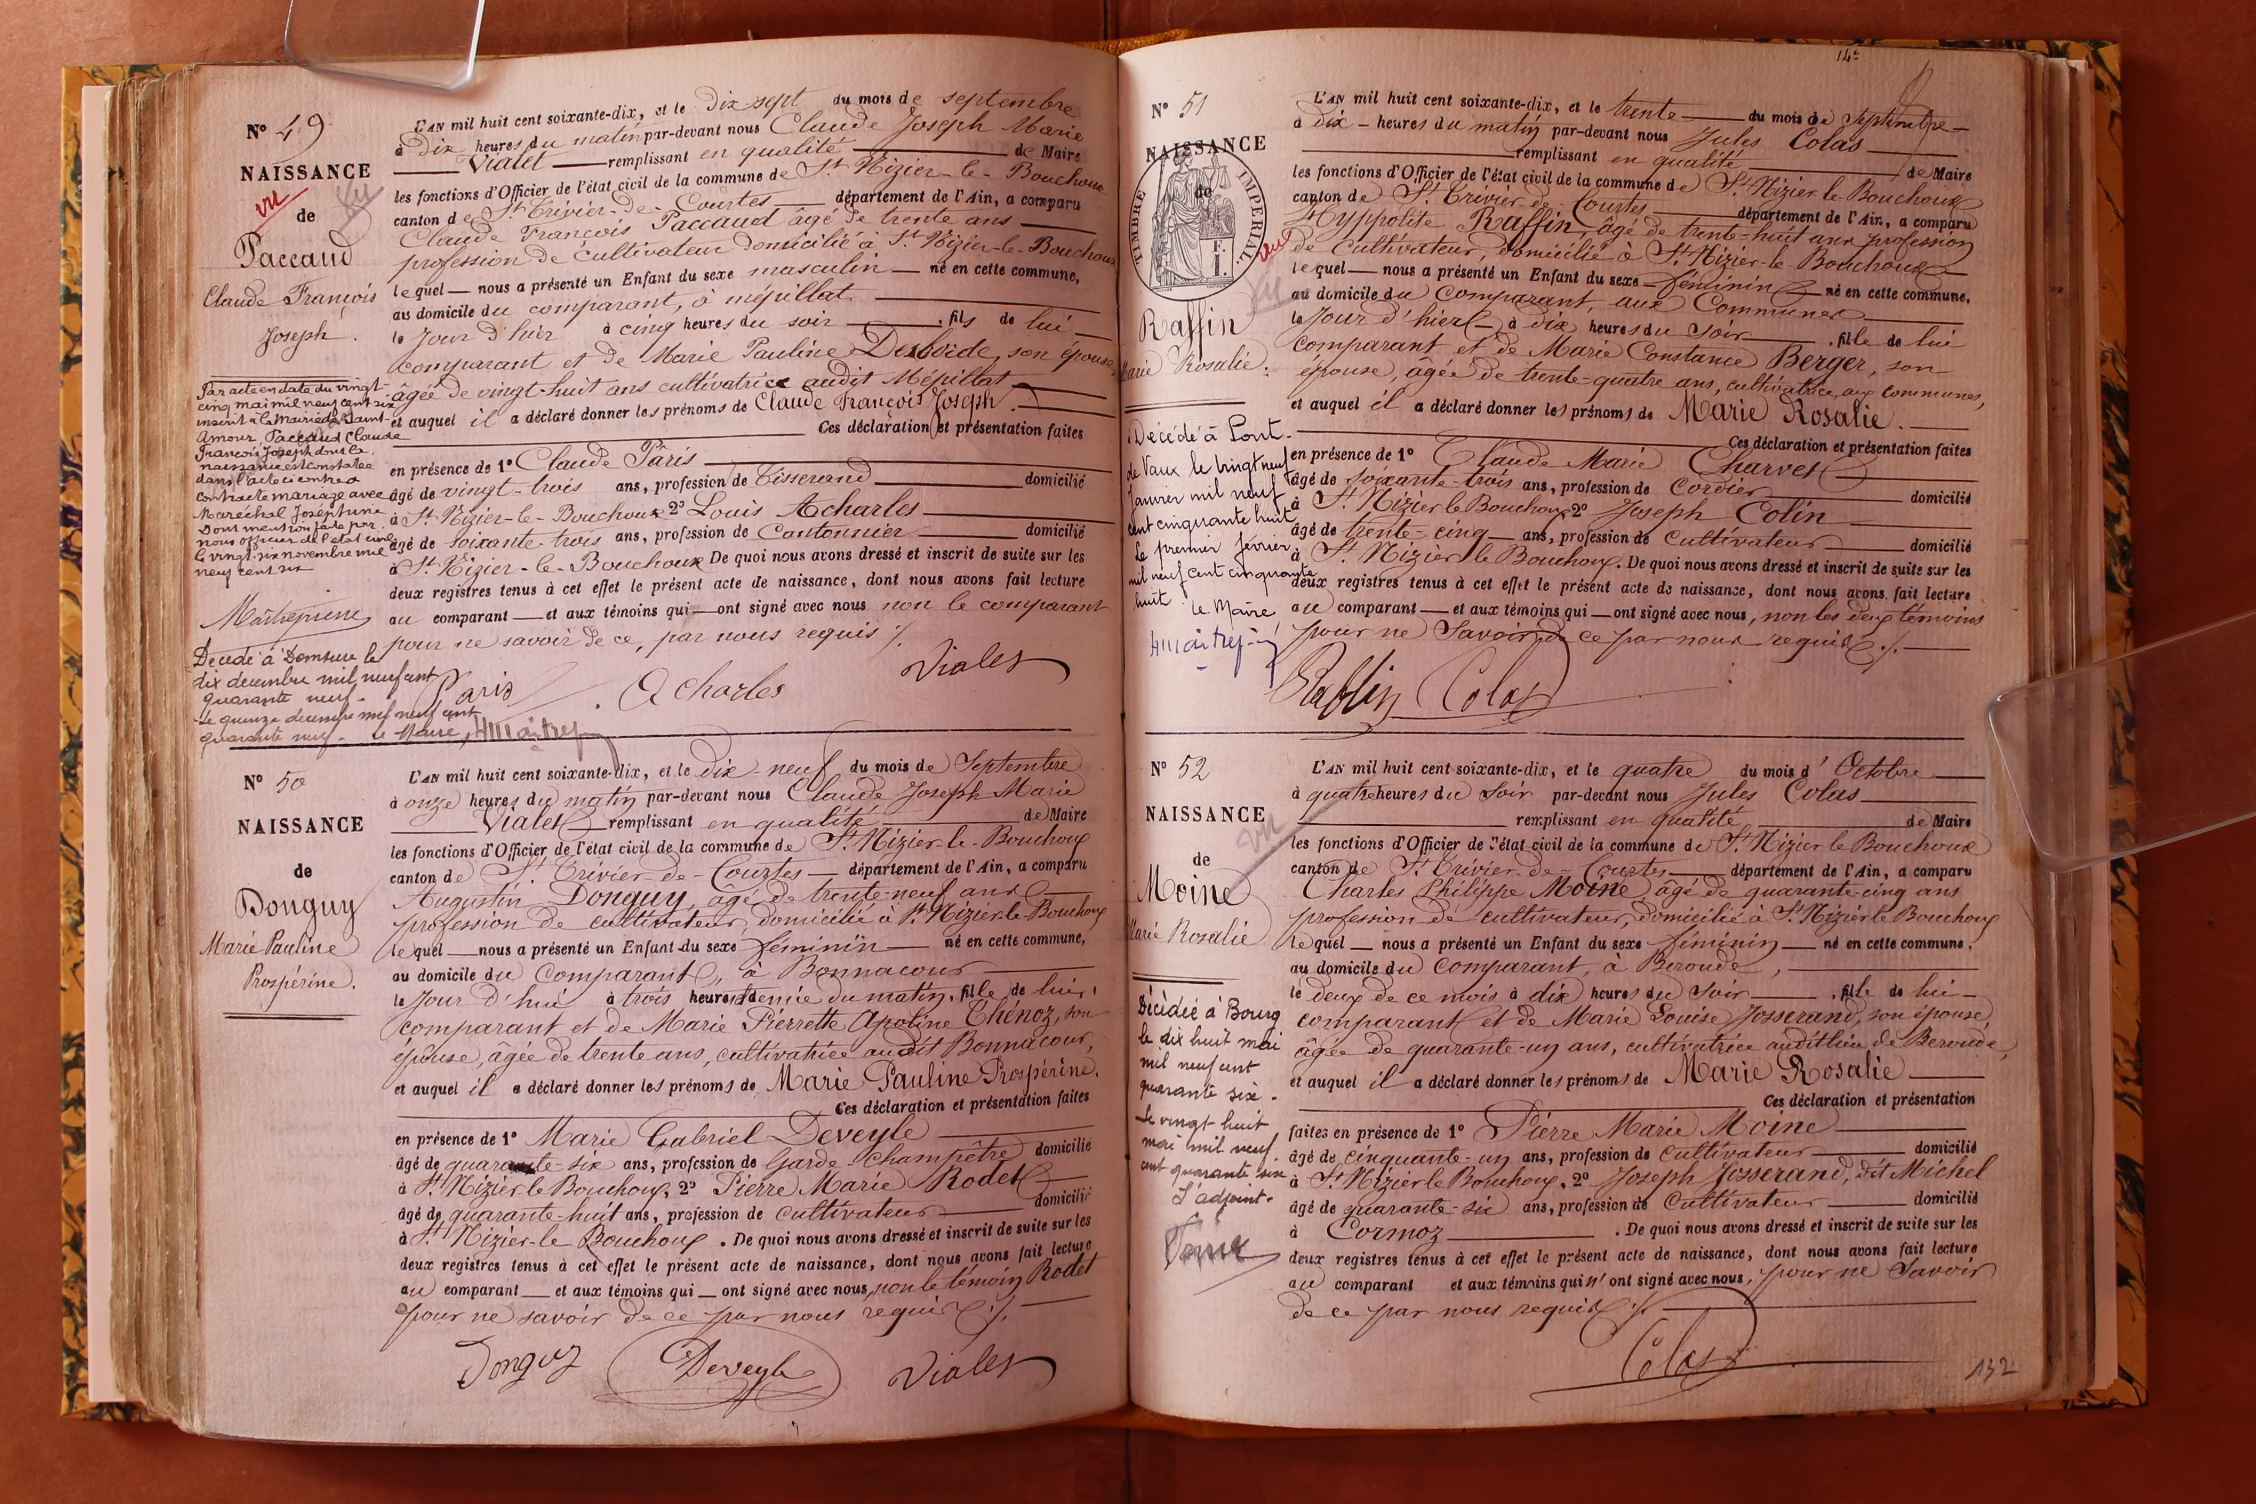 N° 49
NAISSANCE
vu
vu
de
Paccaud
Claude François
Joseph.
Par acte en date du vingt-
cinq mai mil neuf cent six
inscrit à la Mairie de Saint-
Amour, Paccaud Claude
François Joseph dont la
naissance est constatée
dans l'acte ci contre a
contracté mariage avec
Maréchal Joséphine
Dont mention faite par
nous officier de l'état civil
le vingt-six novembre mil
neuf cent six
Décédé à Domsure le
dix décembre mil neuf cent
quarante neuf.
Le quinze décembre mil neuf cent
quarante neuf. Le Maire,
L'AN mil huit cent soixante-dix, et le dix sept du mois de septembre
à dix heures du matin par-devant nous Claude Joseph Marie
Vialet remplissant en qualité de Maire
les fonctions d'Officier de l'état civil de la commune de St Nizier-le-Bouchoux
canton de St Trivier-de-Courtes département de l'Ain, a comparu
Claude François Paccaud âgé de trente ans
profession de cultivateur domicilié à St Nizier-le-Bouchoux
lequel nous a présenté un Enfant du sexe masculin né en cette commune,
au domicile du comparant, à mépillat
le Jour d'hier à cinq heures du soir, fils de lui
comparant et de Marie Pauline Desboide, son épouse,
âgée de vingt-huit ans cultivatrice audit Mépillat
et auquel il a déclaré donner les prénoms de Claude François Joseph.
Ces déclaration et présentation faites
en présence de 1° Claude Pâris
âgé de vingt-trois ans, profession de Tisserand domicilié
à St Nizier-le-Bouchoux 2° Louis Acharles
âgé de soixante-trois ans, profession de Cantonnier domicilié
à St Nizier-le-Bouchoux De quoi nous avons dressé et inscrit de suite sur les
deux registres tenus à cet effet le présent acte de naissance, dont nous avons fait lecture
au comparant et aux témoins qui ont signé avec nous non le comparant
pour ne savoir de ce, par nous requis ./.
Paris Acharles Vialet
N° 50
NAISSANCE
de
Donguy
Marie Pauline
Prospérine.
L'AN mil huit cent soixante-dix, et le dix-neuf du mois de Septembre
à onze heures du matin par-devant nous Claude Joseph Marie
Vialet remplissant en qualité de Maire
les fonctions d'Officier de l'état civil de la commune de St Nizier-le-Bouchoux
canton de St Trivier-de-Courtes département de l'Ain, a comparu
Augustin Donguy, âgé de trente-neuf ans
profession de cultivateur, domicilié à St Nizier-le-Bouchoux
lequel nous a présenté un Enfant du sexe féminin né en cette commune,
au domicile du Comparant, à Bonnacour
le Jour d'hui à trois heures demie du matin, fille de lui,
comparant et de Marie Pierrette Apoline Thénoz, son
épouse, âgée de trente ans, cultivatrice audit Bonnacour,
et auquel il a déclaré donner les prénoms de Marie Pauline Prospérine.
Ces déclaration et présentation faites
en présence de 1° Marie Gabriel Deveyle
âgé de quarante-six ans, profession de Garde-Champêtre domicilié
à St Nizier-le-Bouchoux, 2° Pierre Marie Rodet
âgé de quarante-huit ans, profession de cultivateur domicilié
à St Nizier-le-Bouchoux. De quoi nous avons dressé et inscrit de suite sur les
deux registres tenus à cet effet le présent acte de naissance, dont nous avons fait lecture
au comparant et aux témoins qui ont signé avec nous, non le témoin Rodet
pour ne savoir de ce par nous requis ./.
Donguy Deveyle Vialet
N° 51
NAISSANCE
de
TIMBRE IMPERIAL
F.
1.
vu
vu
Raffin
Marie Rosalie.
Décédé à Pont-
de Vaux le vingt neuf
Janvier mil neuf
cent cinquante huit
Le premier février
mil neuf cent cinquante
huit. Le Maire
14e
L'AN mil huit cent soixante-dix, et le trente du mois de Septembre
à dix heures du matin par-devant nous Jules Colas
remplissant en qualité de Maire
les fonctions d'Officier de l'état civil de la commune de St Nizier le Bouchoux
canton de St Trivier-de-Courtes département de l'Ain, a comparu
Hyppolite Raffin, âgé de trente-huit ans profession
de Cultivateur, domicilié à St Nizier-le-Bouchoux
lequel nous a présenté un Enfant du sexe féminin né en cette commune,
au domicile du Comparant, aux Communes
le Jour d'hier à dix heures du soir, fille de lui
comparant et de Marie Constance Berger, son
épouse, âgée de trente-quatre ans, cultivatrice aux communes,
et auquel il a déclaré donner les prénoms de Marie Rosalie.
Ces déclaration et présentation faites
en présence de 1° Claude Marie Charvet
âgé de soixante-trois ans, profession de Cordier domicilié
à St Nizier le Bouchoux 2° Joseph Colin
âgé de trente-cinq ans, profession de cultivateur domicilié
à St Nizier le Bouchoux. De quoi nous avons dressé et inscrit de suite sur les
deux registres tenus à cet effet le présent acte de naissance, dont nous avons fait lecture
au comparant et aux témoins qui ont signé avec nous, non les deux témoins
pour ne Savoir, de ce par nous requis ./.
Colas
N° 52
NAISSANCE
vu
de
Moine
Marie Rosalie
Décédée à Bourg
le dix huit mai
mil neuf cent
quarante six.
Le vingt huit
mai mil neuf
cent quarante six
L'adjoint.
L'AN mil huit cent soixante-dix, et le quatre du mois d'Octobre
à quatre heures du soir par-devant nous Jules Colas
remplissant en qualité de Maire
les fonctions d'Officier de l'état civil de la commune de St Nizier le Bouchoux
canton de St Trivier-de-Courtes département de l'Ain, a comparu
Charles Philippe Moine âgé de quarante-cinq ans
profession de cultivateur, domicilié à St Nizier le Bouchoux
lequel nous a présenté un Enfant du sexe féminin né en cette commune,
au domicile du comparant, à Beroude,
le deux de ce mois à dix heures du soir, fille de lui
comparant et de Marie Louise Josserand, son épouse,
âgée de quarante-un ans, cultivatrice auditlieu de Beroude,
et auquel il a déclaré donner les prénoms de Marie Rosalie
Ces déclaration et présentation
faites en présence de 1° Pierre Marie Moine
âgé de cinquante-un ans, profession de cultivateur domicilié
à St Nizier le Bouchoux, 2° Joseph Josserand, dit Michel
âgé de quarante-six ans, profession de Cultivateur domicilié
à Cormoz. De quoi nous avons dressé et inscrit de suite sur les
deux registres tenus à cet effet le présent acte de naissance, dont nous avons fait lecture
au comparant et aux témoins qui n'ont signé avec nous, pour ne Savoir
de ce par nous requis ./.
Colas
132